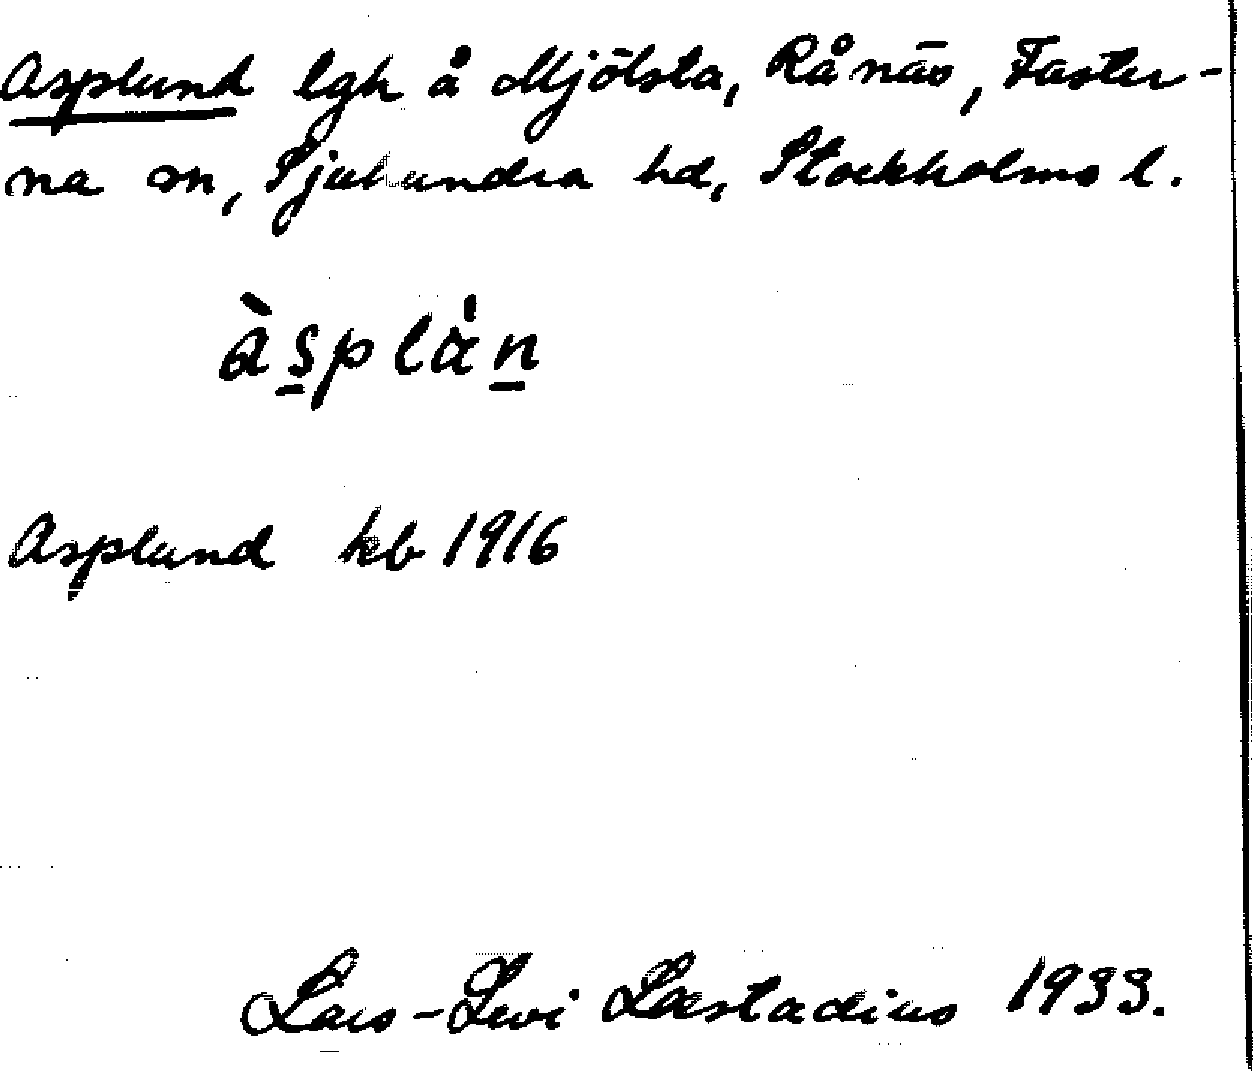 Asplund lgh å Mjölsta, Rånäs, Faster-
na sn, Sjuhundra hd, Stockholms l.
às̠plȧn̠
Asplund kb 1916
Lars-Levi Læstadius 1933.